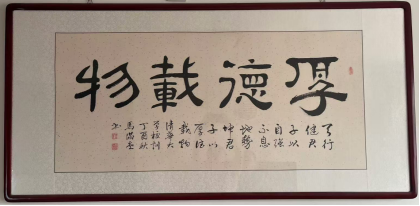 厚德載物
天行
健君
子以
自強
不息
地勢
坤君
子以
厚德
載物
清華大
學校訓
丁酉秋